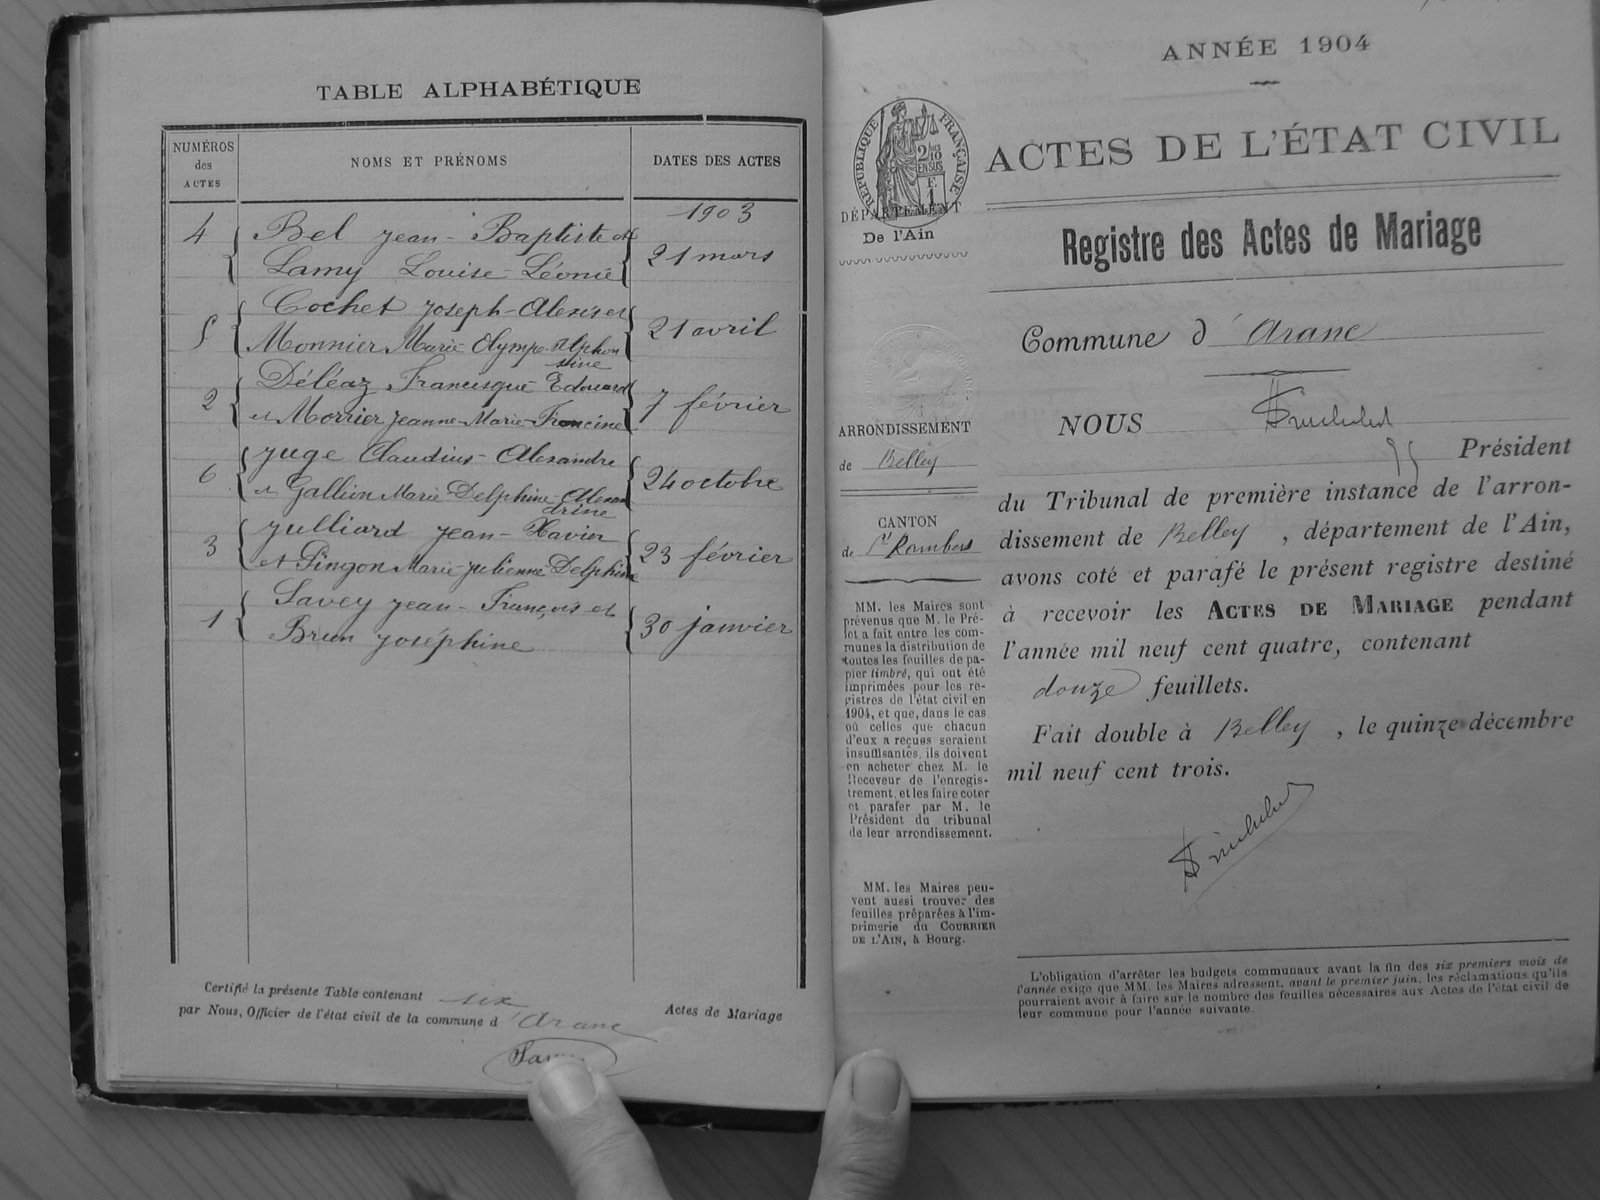 TABLE ALPHABÉTIQUE
NUMÉROS
des
ACTES
NOMS ET PRÉNOMS
DATES DES ACTES
1903
4
Bel Jean-Baptiste et
Lamy Louise-Léonie
21 mars
5
Cochet Joseph-Alexis et
Monnier Marie Olympe Alphon
sine
21 avril
2
Déléaz Francisque Edouard
et Morrier Jeanne-Marie-Francine
7 février
6
Juge Claudius-Alexandre
et Gallien Marie-Delphine-Alexan
drine
24 octobre
3
Julliard Jean-Xavier
et Pingon Marie Julienne Delphine
23 février
1
Savey Jean-François et
Brun Joséphine
30 janvier
Certifié la présente Table contenant six Actes de Mariage
par Nous, Officier de l'état civil de la commune d'Aranc
ANNÉE 1904
RÉPUBLIQUE FRANÇAISE
2/10
EN SUS
F.
1
DÉPARTEMENT
De l'Ain
ACTES DE L'ÉTAT CIVIL
Registre des Actes de Mariage
Commune d'Aranc
ARRONDISSEMENT
de Belley
CANTON
de St Rambert
MM. les Maires sont
prévenus que M. le Pré-
fet a fait entre les com-
munes la distribution de
toutes les feuilles de pa-
pier timbré, qui ont été
imprimées pour les re-
gistres de l'état civil en
1904, et que, dans le cas
où celles que chacun
d'eux a reçues seraient
insuffisantes, ils doivent
en acheter chez M. le
Receveur de l'enregis-
trement, et les faire coter
et parafer par M. le
Président du tribunal
de leur arrondissement.
MM. les Maires peu-
vent aussi trouver des
feuilles préparées à l'im-
primerie du COURRIER
DE L'AIN, à Bourg.
NOUS
Président
du Tribunal de première instance de l'arron-
dissement de Belley, département de l'Ain,
avons coté et parafé le présent registre destiné
à recevoir les ACTES DE MARIAGE pendant
l'année mil neuf cent quatre, contenant
douze feuillets.
Fait double à Belley, le quinze décembre
mil neuf cent trois.
L'obligation d'arrêter les budgets communaux avant la fin des six premiers mois de
l'année exige que MM. les Maires adressent, avant le premier juin, les réclamations qu'ils
pourraient avoir à faire sur le nombre des feuilles nécessaires aux Actes de l'état civil de
leur commune pour l'année suivante.